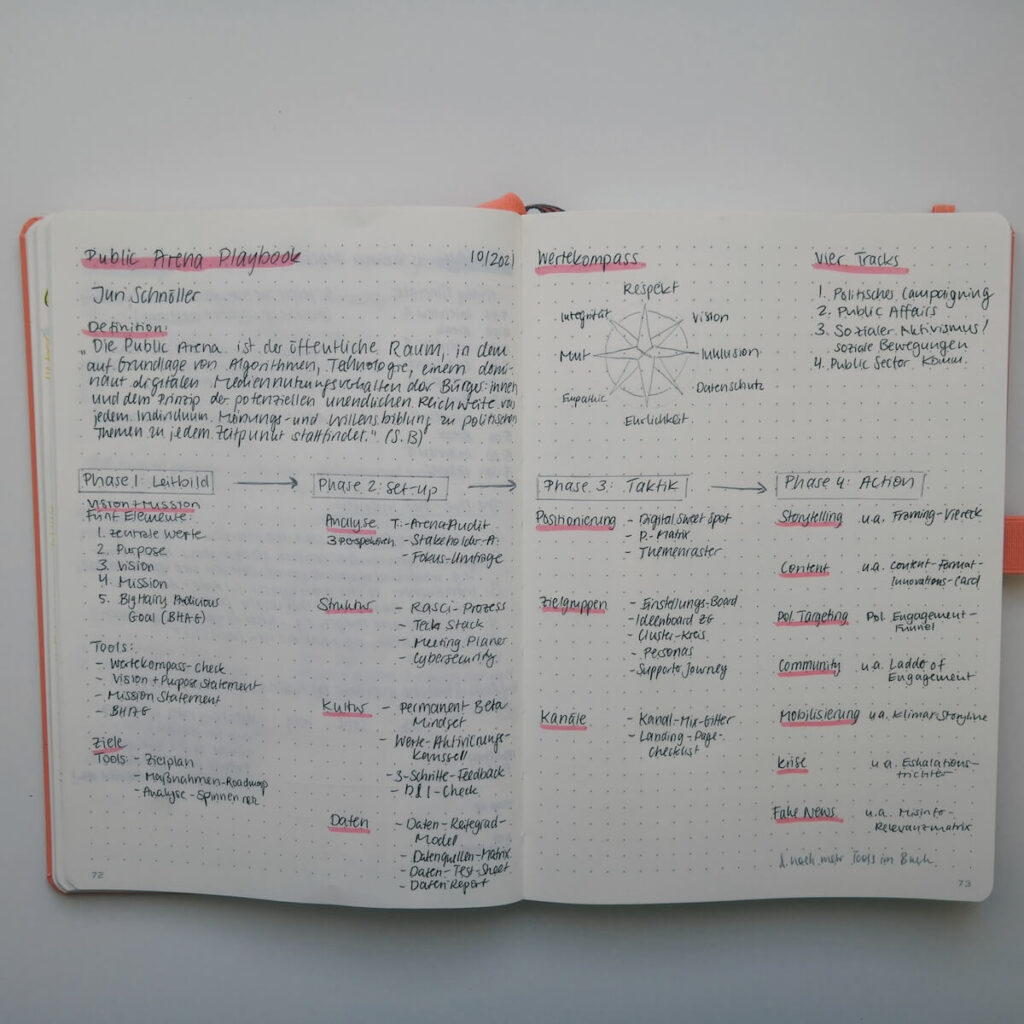 Public Arena Playbook
10/2021
Juri Schnöller
Definition:
„Die Public Arena ist der öffentliche Raum, in dem
auf Grundlage von Algorithmen, Technologie, einem domi-
nant digitalen Mediennutzungsverhalten der Bürger:innen
und dem Prinzip der potenziellen unendlichen Reichweite von
jedem Individuum Meinungs- und Willensbildung zu politischen
Themen zu jedem Zeitpunkt stattfindet." (S. 13)
Phase 1: Leitbild
Vision + Mission
Fünf Elemente:
1. zentrale Werte
2. Purpose
3. Vision
4. Mission
5. Big Hairy Audacious
Goal (BHAG)
Tools:
- Wertekompass-Check
- Vision + Purpose Statement
- Mission Statement
- BHAG
Ziele
Tools: - Zielplan
- Maßnahmen-Roadmap
- Analyse-Spinnennetz
Phase 2: Set-up
Analyse
3 Perspektiven
T: - Arena Audit
- Stakeholder-A.
- Fokus-Umfrage
Struktur
- RASCI-Prozess
- Tech Stack
- Meeting Planer
- Cybersecurity
Kultur
- Permanent Beta
Mindset
- Werte-Aktivierungs-
karussell
- 3-Schritte-Feedback
- D&I-Check
Daten
- Daten-Reifegrad-
Model
- Datenquellen-Matrix
- Daten-Test-Sheet
- Daten Report
72
Wertekompass
Respekt
Vision
Inklusion
Datenschutz
Ehrlichkeit
Empathie
Mut
Integrität
Vier Tracks
1. Politisches Campaigning
2. Public Affairs
3. Sozialer Aktivismus/
soziale Bewegungen
4. Public Sector Komm.
Phase 3: Taktik
Positionierung
- Digital Sweet Spot
- P.-Matrix
- Themenraster
Zielgruppen
- Einstellungs-Board
- Ideenboard ZG
- Cluster-Kreis
- Personas
- Supporter Journey
Kanäle
- Kanal-Mix-Gitter
- Landing-Page-
Checklist
Phase 4: Action
Storytelling u.a. Framing-Viereck
Content u.a. Content-Format-
Innovations-Card
Pol. Targeting Pol. Engagement-
Funnel
Community u.a. Ladder of
Engagement
Mobilisierung u.a. Klimax Storyline
Krise u.a. Eskalations-
trichter
Fake News u.a. Misinfo-
Relevanzmatrix
noch mehr Tools im Buch
73